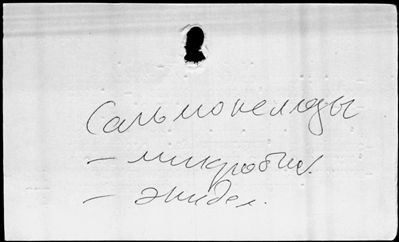 Сальмонеллезы
- микробиол.
- эпидем.